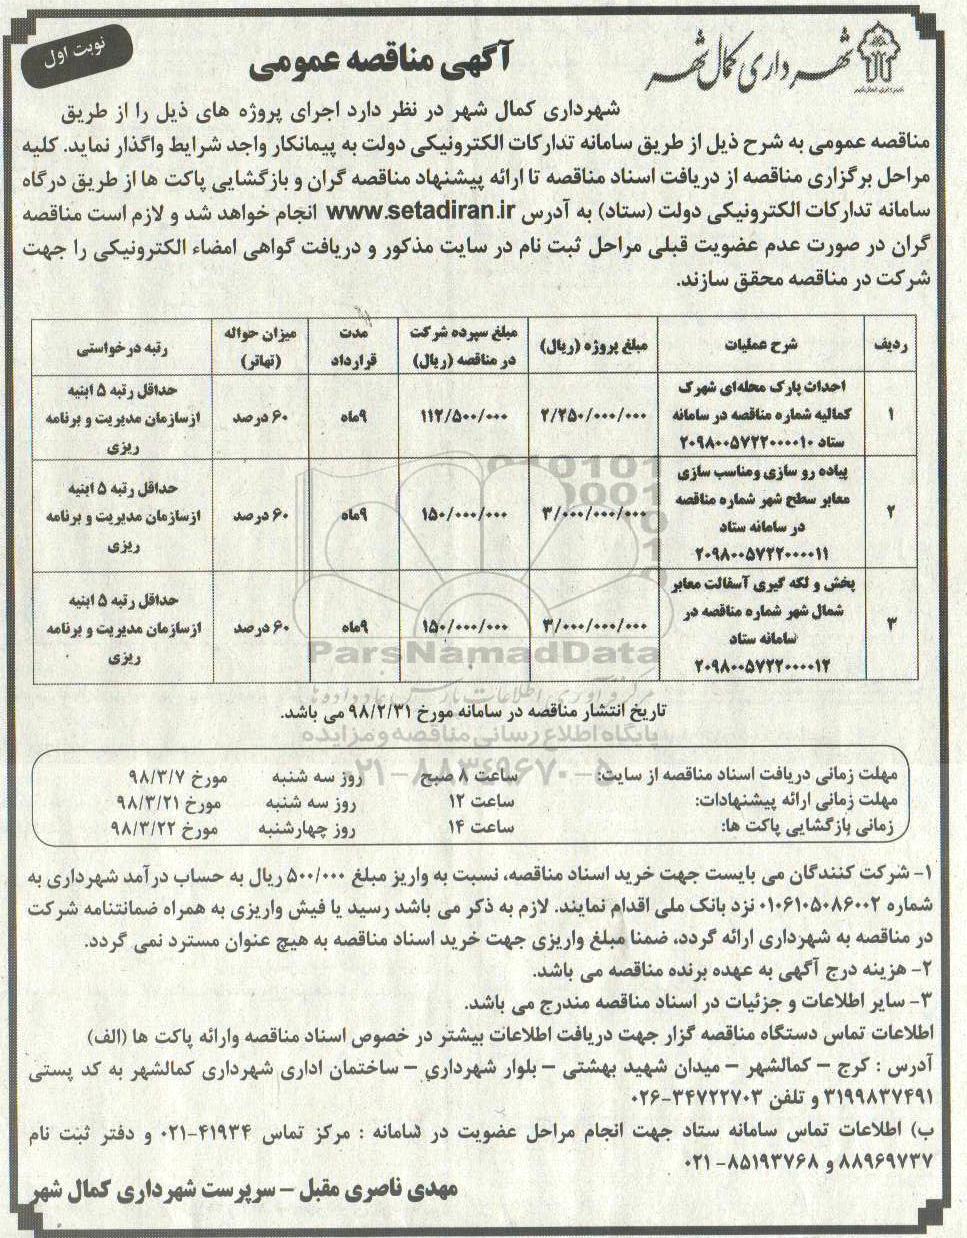 نوبت اول
شهرداری کمال شهر
آگهی مناقصه عمومی
شهرداری کمال شهر در نظر دارد اجرای پروژه های ذیل را از طریق
مناقصه عمومی به شرح ذیل از طریق سامانه تدارکات الکترونیکی دولت به پیمانکار واجد شرایط واگذار نماید. کلیه
مراحل برگزاری مناقصه از دریافت اسناد مناقصه تا ارائه پیشنهاد مناقصه گران و بازگشایی پاکت ها از طریق درگاه
سامانه تدارکات الکترونیکی دولت (ستاد) به آدرس www.setadiran.ir انجام خواهد شد و لازم است مناقصه
گران در صورت عدم عضویت قبلی مراحل ثبت نام در سایت مذکور و دریافت گواهی امضاء الکترونیکی را جهت
شرکت در مناقصه محقق سازند.
ردیف شرح عملیات مبلغ پروژه (ریال) مبلغ سپرده شرکت در مناقصه (ریال) مدت قرارداد میزان حواله (تهاتر) رتبه درخواستی
۱ احداث پارک محله‌ای شهرک کمالیه شماره مناقصه در سامانه ستاد ۲۰۹۸۰۰۵۷۲۲۰۰۰۰۱۰ ۲/۲۵۰/۰۰۰/۰۰۰ ۱۱۲/۵۰۰/۰۰۰ ۹ماه ۶۰ درصد حداقل رتبه ۵ ابنیه ازسازمان مدیریت و برنامه ریزی
۲ پیاده رو سازی ومناسب سازی معابر سطح شهر شماره مناقصه در سامانه ستاد ۲۰۹۸۰۰۵۷۲۲۰۰۰۰۱۱ ۳/۰۰۰/۰۰۰/۰۰۰ ۱۵۰/۰۰۰/۰۰۰ ۹ماه ۶۰ درصد حداقل رتبه ۵ ابنیه ازسازمان مدیریت و برنامه ریزی
۳ پخش و لکه گیری آسفالت معابر شمال شهر شماره مناقصه در سامانه ستاد ۲۰۹۸۰۰۵۷۲۲۰۰۰۰۱۲ ۳/۰۰۰/۰۰۰/۰۰۰ ۱۵۰/۰۰۰/۰۰۰ ۹ماه ۶۰ درصد حداقل رتبه ۵ ابنیه ازسازمان مدیریت و برنامه ریزی
ParsNamadData
تاریخ انتشار مناقصه در سامانه مورخ ۹۸/۲/۳۱ می باشد.
پایگاه اطلاع رسانی مناقصه و مزایده
۰۲۱-۸۸۳۴۹۶۷۰-۵
مهلت زمانی دریافت اسناد مناقصه از سایت: ساعت ۸ صبح روز سه شنبه مورخ ۹۸/۳/۷
مهلت زمانی ارائه پیشنهادات: ساعت ۱۲ روز سه شنبه مورخ ۹۸/۳/۲۱
زمانی بازگشایی پاکت ها: ساعت ۱۴ روز چهارشنبه مورخ ۹۸/۳/۲۲
۱- شرکت کنندگان می بایست جهت خرید اسناد مناقصه، نسبت به واریز مبلغ ۵۰۰/۰۰۰ ریال به حساب درآمد شهرداری به
شماره ۰۱۰۶۱۰۵۰۸۶۰۰۲ نزد بانک ملی اقدام نمایند. لازم به ذکر می باشد رسید یا فیش واریزی به همراه ضمانتنامه شرکت
در مناقصه به شهرداری ارائه گردد، ضمنا مبلغ واریزی جهت خرید اسناد مناقصه به هیچ عنوان مسترد نمی گردد.
۲- هزینه درج آگهی به عهده برنده مناقصه می باشد.
۳- سایر اطلاعات و جزئیات در اسناد مناقصه مندرج می باشد.
اطلاعات تماس دستگاه مناقصه گزار جهت دریافت اطلاعات بیشتر در خصوص اسناد مناقصه وارائه پاکت ها (الف)
آدرس : کرج – کمالشهر – میدان شهید بهشتی – بلوار شهرداری – ساختمان اداری شهرداری کمالشهر به کد پستی
۳۱۹۹۸۳۷۴۹۱ و تلفن ۳۴۷۲۲۷۰۳-۰۲۶
ب) اطلاعات تماس سامانه ستاد جهت انجام مراحل عضویت در سامانه : مرکز تماس ۴۱۹۳۴-۰۲۱ و دفتر ثبت نام
۸۸۹۶۹۷۳۷ و ۸۵۱۹۳۷۶۸-۰۲۱
مهدی ناصری مقبل – سرپرست شهرداری کمال شهر